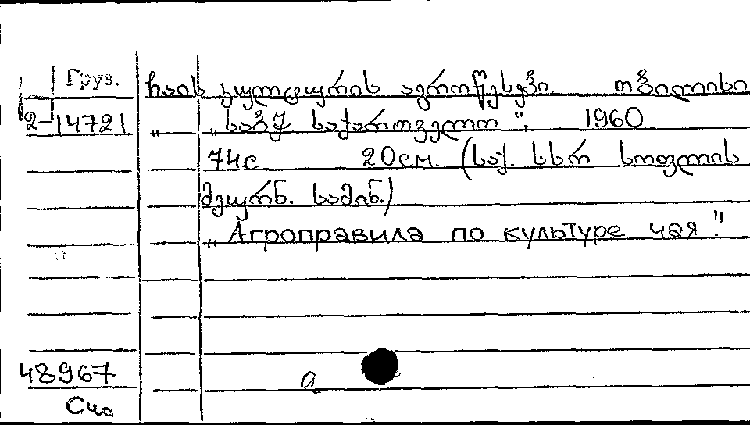 Груз. ჩაის კულტურის აგროწესები თბილისი
2-14721 „ „საბჭ საქართველო", 1960
74с 20см. (საქ. სსრ სოფლის
მეურნ. სამინ.)
„Агроправила по культуре чая."
48967 а